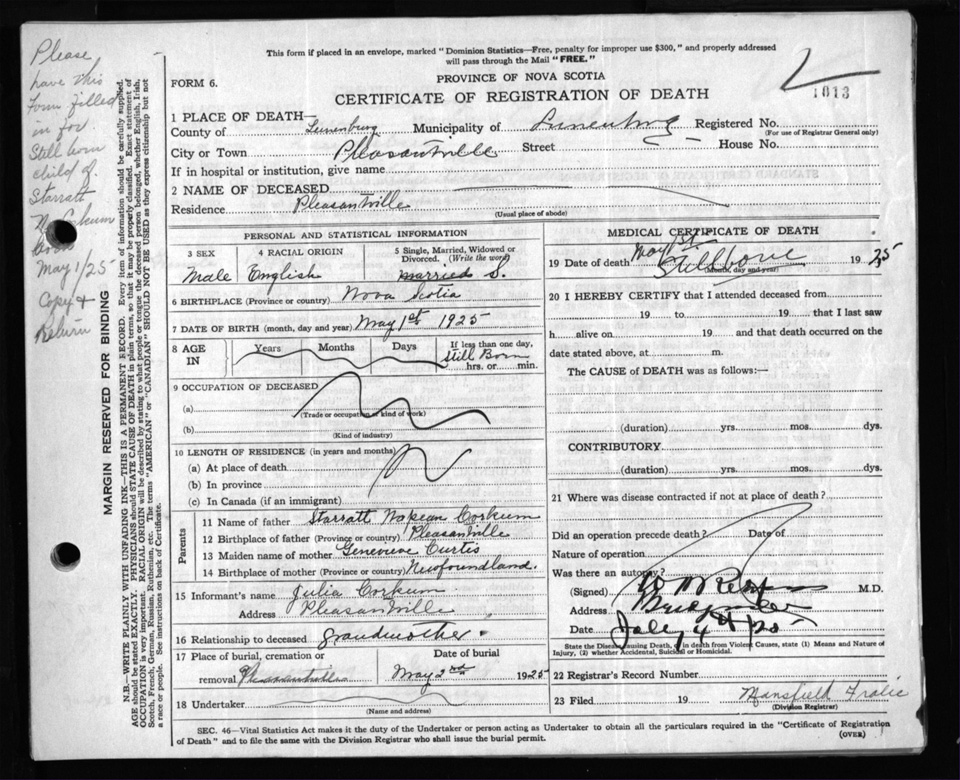 Please
have this
form filled
in for
Still born
child of
Starratt
N. Corkum
born
May 1/25
Copy &
Return
MARGIN RESERVED FOR BINDING
N.B.—WRITE PLAINLY WITH UNFADING INK—THIS IS A PERMANENT RECORD. Every item of information should be carefully supplied.
AGE should be stated EXACTLY. PHYSICIANS should STATE CAUSE OF DEATH in plain terms, so that it may be properly classified. Exact statement of
OCCUPATION is very important. RACIAL ORIGIN will be described by stating to what people or tongue the deceased person belonged, whether English, Irish,
Scotch, French, German, Russian, Ruthenian, etc. The terms "AMERICAN" or "CANADIAN" SHOULD NOT BE USED as they express citizenship but not
a race or people. See instructions on back of Certificate.
This form if placed in an envelope, marked "Dominion Statistics—Free, penalty for improper use $300," and properly addressed
will pass through the Mail "FREE."
FORM 6.
PROVINCE OF NOVA SCOTIA
1013
CERTIFICATE OF REGISTRATION OF DEATH
1 PLACE OF DEATH—
County of Lunenburg Municipality of Lunenburg Registered No.
(For use of Registrar General only)
City or Town Pleasantville Street House No.
If in hospital or institution, give name
2 NAME OF DECEASED
Residence Pleasantville
(Usual place of abode)
PERSONAL AND STATISTICAL INFORMATION
3 SEX 4 RACIAL ORIGIN 5 Single, Married, Widowed or Divorced. (Write the word)
Male English married S.
6 BIRTHPLACE (Province or country) Nova Scotia
7 DATE OF BIRTH (month, day and year) May 1st 1925
8 AGE IN Years Months Days If less than one day, Still Born hrs. or min.
9 OCCUPATION OF DECEASED
(a)
(Trade or occupation or kind of work)
(b)
(Kind of industry)
10 LENGTH OF RESIDENCE (in years and months)
(a) At place of death
(b) In province
(c) In Canada (if an immigrant)
Parents
11 Name of father Starratt Corkum
12 Birthplace of father (Province or country) Pleasantville
13 Maiden name of mother Genevieve Curtis
14 Birthplace of mother (Province or country) Newfoundland.
15 Informant's name Julia Corkum
Address Pleasantville
16 Relationship to deceased grandmother
17 Place of burial, cremation or removal Pleasantville Date of burial May 2nd 1925
18 Undertaker
(Name and address)
MEDICAL CERTIFICATE OF DEATH
19 Date of death May 1st Stillborn 1925
(Month, day and year)
20 I HEREBY CERTIFY that I attended deceased from
19 to 19 that I last saw
h alive on 19 and that death occurred on the
date stated above, at m.
The CAUSE of DEATH was as follows:—
(duration) yrs. mos. dys.
CONTRIBUTORY.
(duration) yrs. mos. dys.
21 Where was disease contracted if not at place of death?
Did an operation precede death? Date of
Nature of operation
Was there an autopsy?
(Signed) M.D.
Address Bridgewater
Date July 4th 25
State the Disease causing Death, or in death from Violent Causes, state (1) Means and Nature of
Injury, (2) whether Accidental, Suicidal or Homicidal.
22 Registrar's Record Number
23 Filed 19 Mansfield Fralic
(Division Registrar)
SEC. 46—Vital Statistics Act makes it the duty of the Undertaker or person acting as Undertaker to obtain all the particulars required in the "Certificate of Registration
of Death" and to file the same with the Division Registrar who shall issue the burial permit.
(OVER)